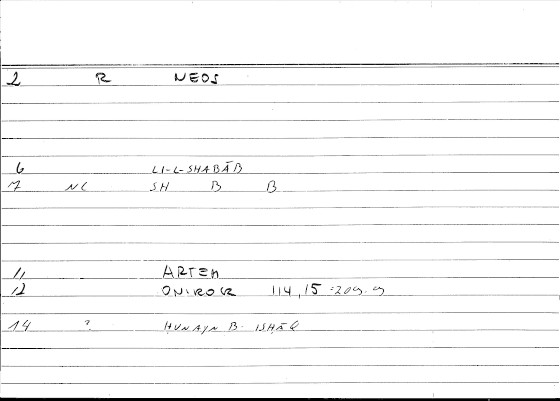 2 R NEOS
6 LI-L-SHABĀB
7 NC SH B B
11 ARTEM
12 ONIROCR 114,15 = 209.9
14 ? ḤUNAYN B. ISḤĀQ